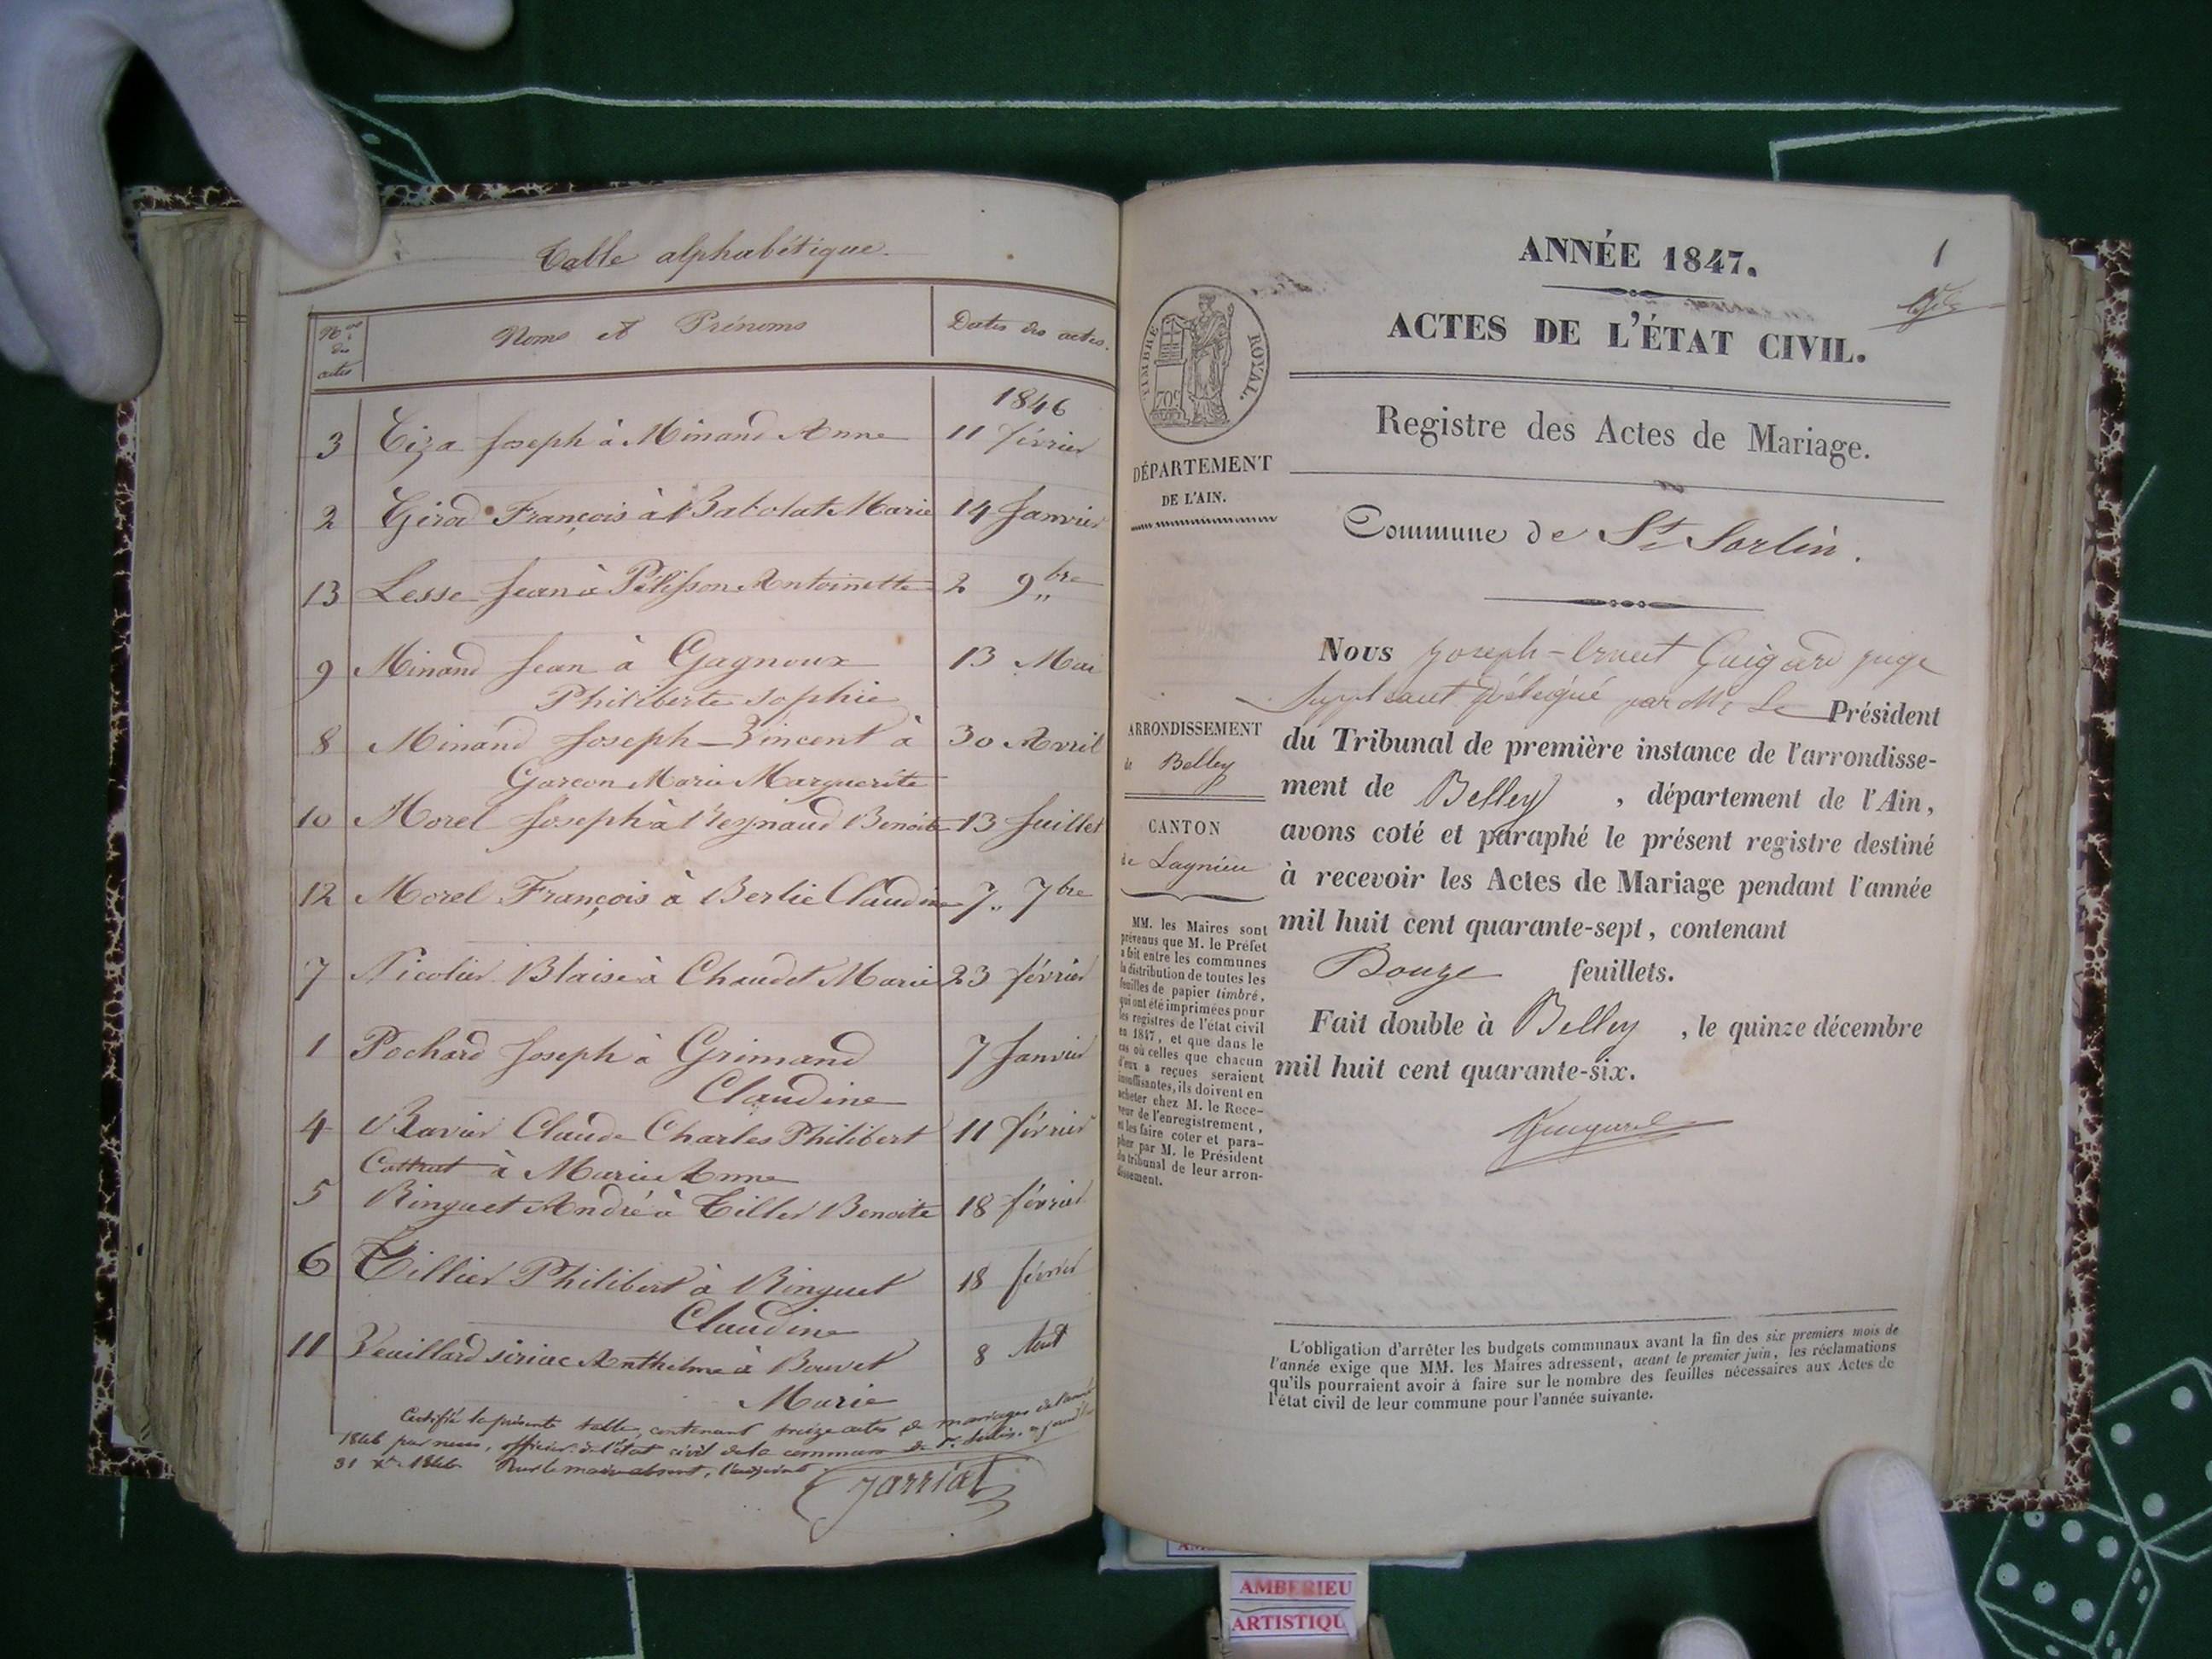 Table alphabétique.
Nos des actes
Noms et Prénoms
Dates des actes.
1846
3 Tiza Joseph à Minand Anne 11 février
2 Girod François à Babolat Marie 14 Janvier
13 Lesse Jean à Pélisson Antoinette 2 9bre
9 Minand Jean à Gagnoux 13 Mai
Philiberte Sophie
8 Minand Joseph-Vincent à 30 Avril
Garcon Marie Marguerite
10 Morel Joseph à Reynaud Benoite 13 Juillet
12 Morel François à Berlie Claudine 7 7bre
7 Nicolier Blaise à Chaudet Marie 23 février
1 Pochard Joseph à Grimand 7 Janvier
Claudine
4 Ravier Claude Charles Philibert 11 février
Cottrat à Marie Anne
5 Ringuet André à Tiller Benoite 18 février
6 Tillier Philibert à Ringuet 18 février
Claudine
11 Veuillard siriac Anthelme à Bouvet 8 Aout
Marie
Certifié la présente table, contenant treize actes de mariages de l'année
1846 par nous, officier de l'état civil de la commune de St. Sorlin.
31 Xbre 1846 Pour le maire absent, l'adjoint
Jarriat
1
ANNÉE 1847.
ACTES DE L'ÉTAT CIVIL.
TIMBRE ROYAL.
70c
Registre des Actes de Mariage.
DÉPARTEMENT
DE L'AIN.
Commune de St Sorlin.
Nous Joseph-Ernest Guigard juge
Suppléant délégué par Mr Le Président
du Tribunal de première instance de l'arrondisse-
ment de Belley, département de l'Ain,
avons coté et paraphé le présent registre destiné
à recevoir les Actes de Mariage pendant l'année
mil huit cent quarante-sept, contenant
Douze feuillets.
Fait double à Belley, le quinze décembre
mil huit cent quarante-six.
Guigard
ARRONDISSEMENT
de Belley
CANTON
de Lagnieu
MM. les Maires sont
prévenus que M. le Préfet
a fait entre les communes
la distribution de toutes les
feuilles de papier timbré,
qui ont été imprimées pour
les registres de l'état civil
en 1847, et que dans le
cas où celles que chacun
d'eux a reçues seraient
insuffisantes, ils doivent en
acheter chez M. le Rece-
veur de l'enregistrement,
et les faire coter et para-
pher par M. le Président
du tribunal de leur arron-
dissement.
L'obligation d'arrêter les budgets communaux avant la fin des six premiers mois de
l'année exige que MM. les Maires adressent, avant le premier juin, les réclamations
qu'ils pourraient avoir à faire sur le nombre des feuilles nécessaires aux Actes de
l'état civil de leur commune pour l'année suivante.
AMBERIEU
ARTISTIQU